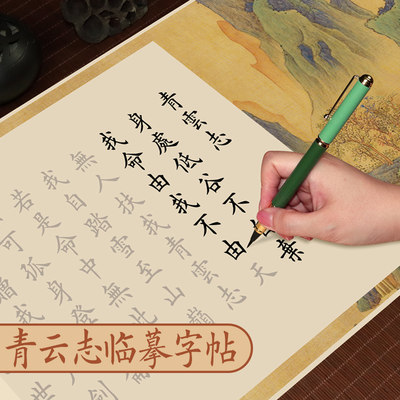 青雲志
身處低谷不棄
我命由我不由天
無人扶我青雲志
我自踏雪至山巔
若是命中無此
可孤身登
青云志临摹字帖